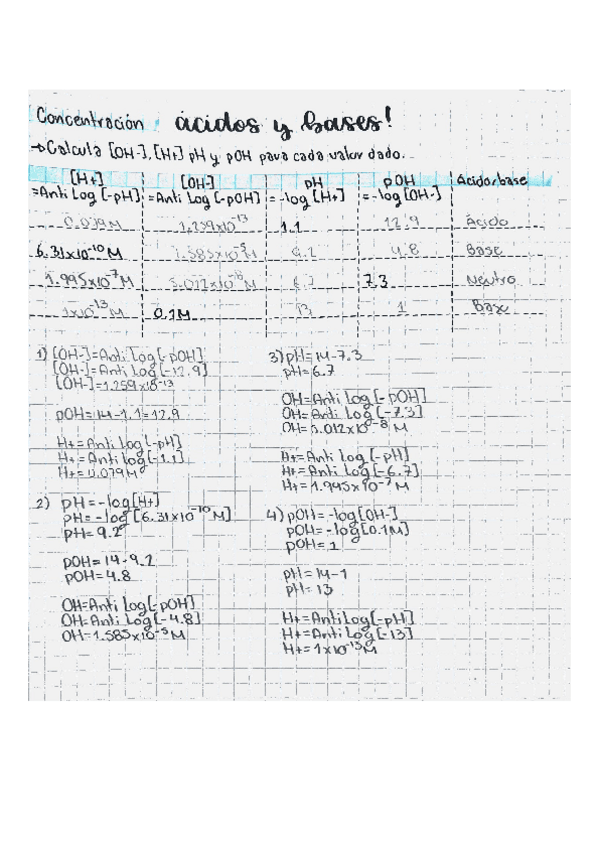 Concentración ácidos y bases!
→Calcula [OH-], [H+] pH y pOH para cada valor dado.
[H+] [OH-] pH pOH Ácido.base
=Anti Log [-pH] =Anti Log [-pOH] =-log [H+] =-log [OH-]
0.079M 1.259x10⁻¹³ 1.1 12.9 Ácido
6.31x10⁻¹⁰M 1.585x10⁻⁵M 9.2 4.8 Base
1.995x10⁻⁷M 5.012x10⁻⁸M 6.7 7.3 Neutro
1x10⁻¹³M 0.1M 13 1 Base
1) [OH-]=Anti Log[-pOH]
[OH-]=Anti Log[-12.9]
[OH-]=1.259x10⁻¹³
pOH=14-1.1=12.9
H+=Anti Log[-pH]
H+=Anti Log[-1.1]
H+=0.079M
2) pH=-log[H+]
pH=-log [6.31x10⁻¹⁰M]
pH=9.2
pOH=14-9.2
pOH=4.8
OH=Anti Log[-pOH]
OH=Anti Log[-4.8]
OH=1.585x10⁻⁵M
3) pH=14-7.3
pH=6.7
OH=Anti Log[-pOH]
OH=Anti Log[-7.3]
OH=5.012x10⁻⁸M
H+=Anti Log[-pH]
H+=Anti Log[-6.7]
H+=1.995x10⁻⁷M
4) pOH=-log[OH-]
pOH=-log[0.1M]
pOH=1
pH=14-1
pH=13
H+=Anti Log[-pH]
H+=Anti Log[-13]
H+=1x10⁻¹³M